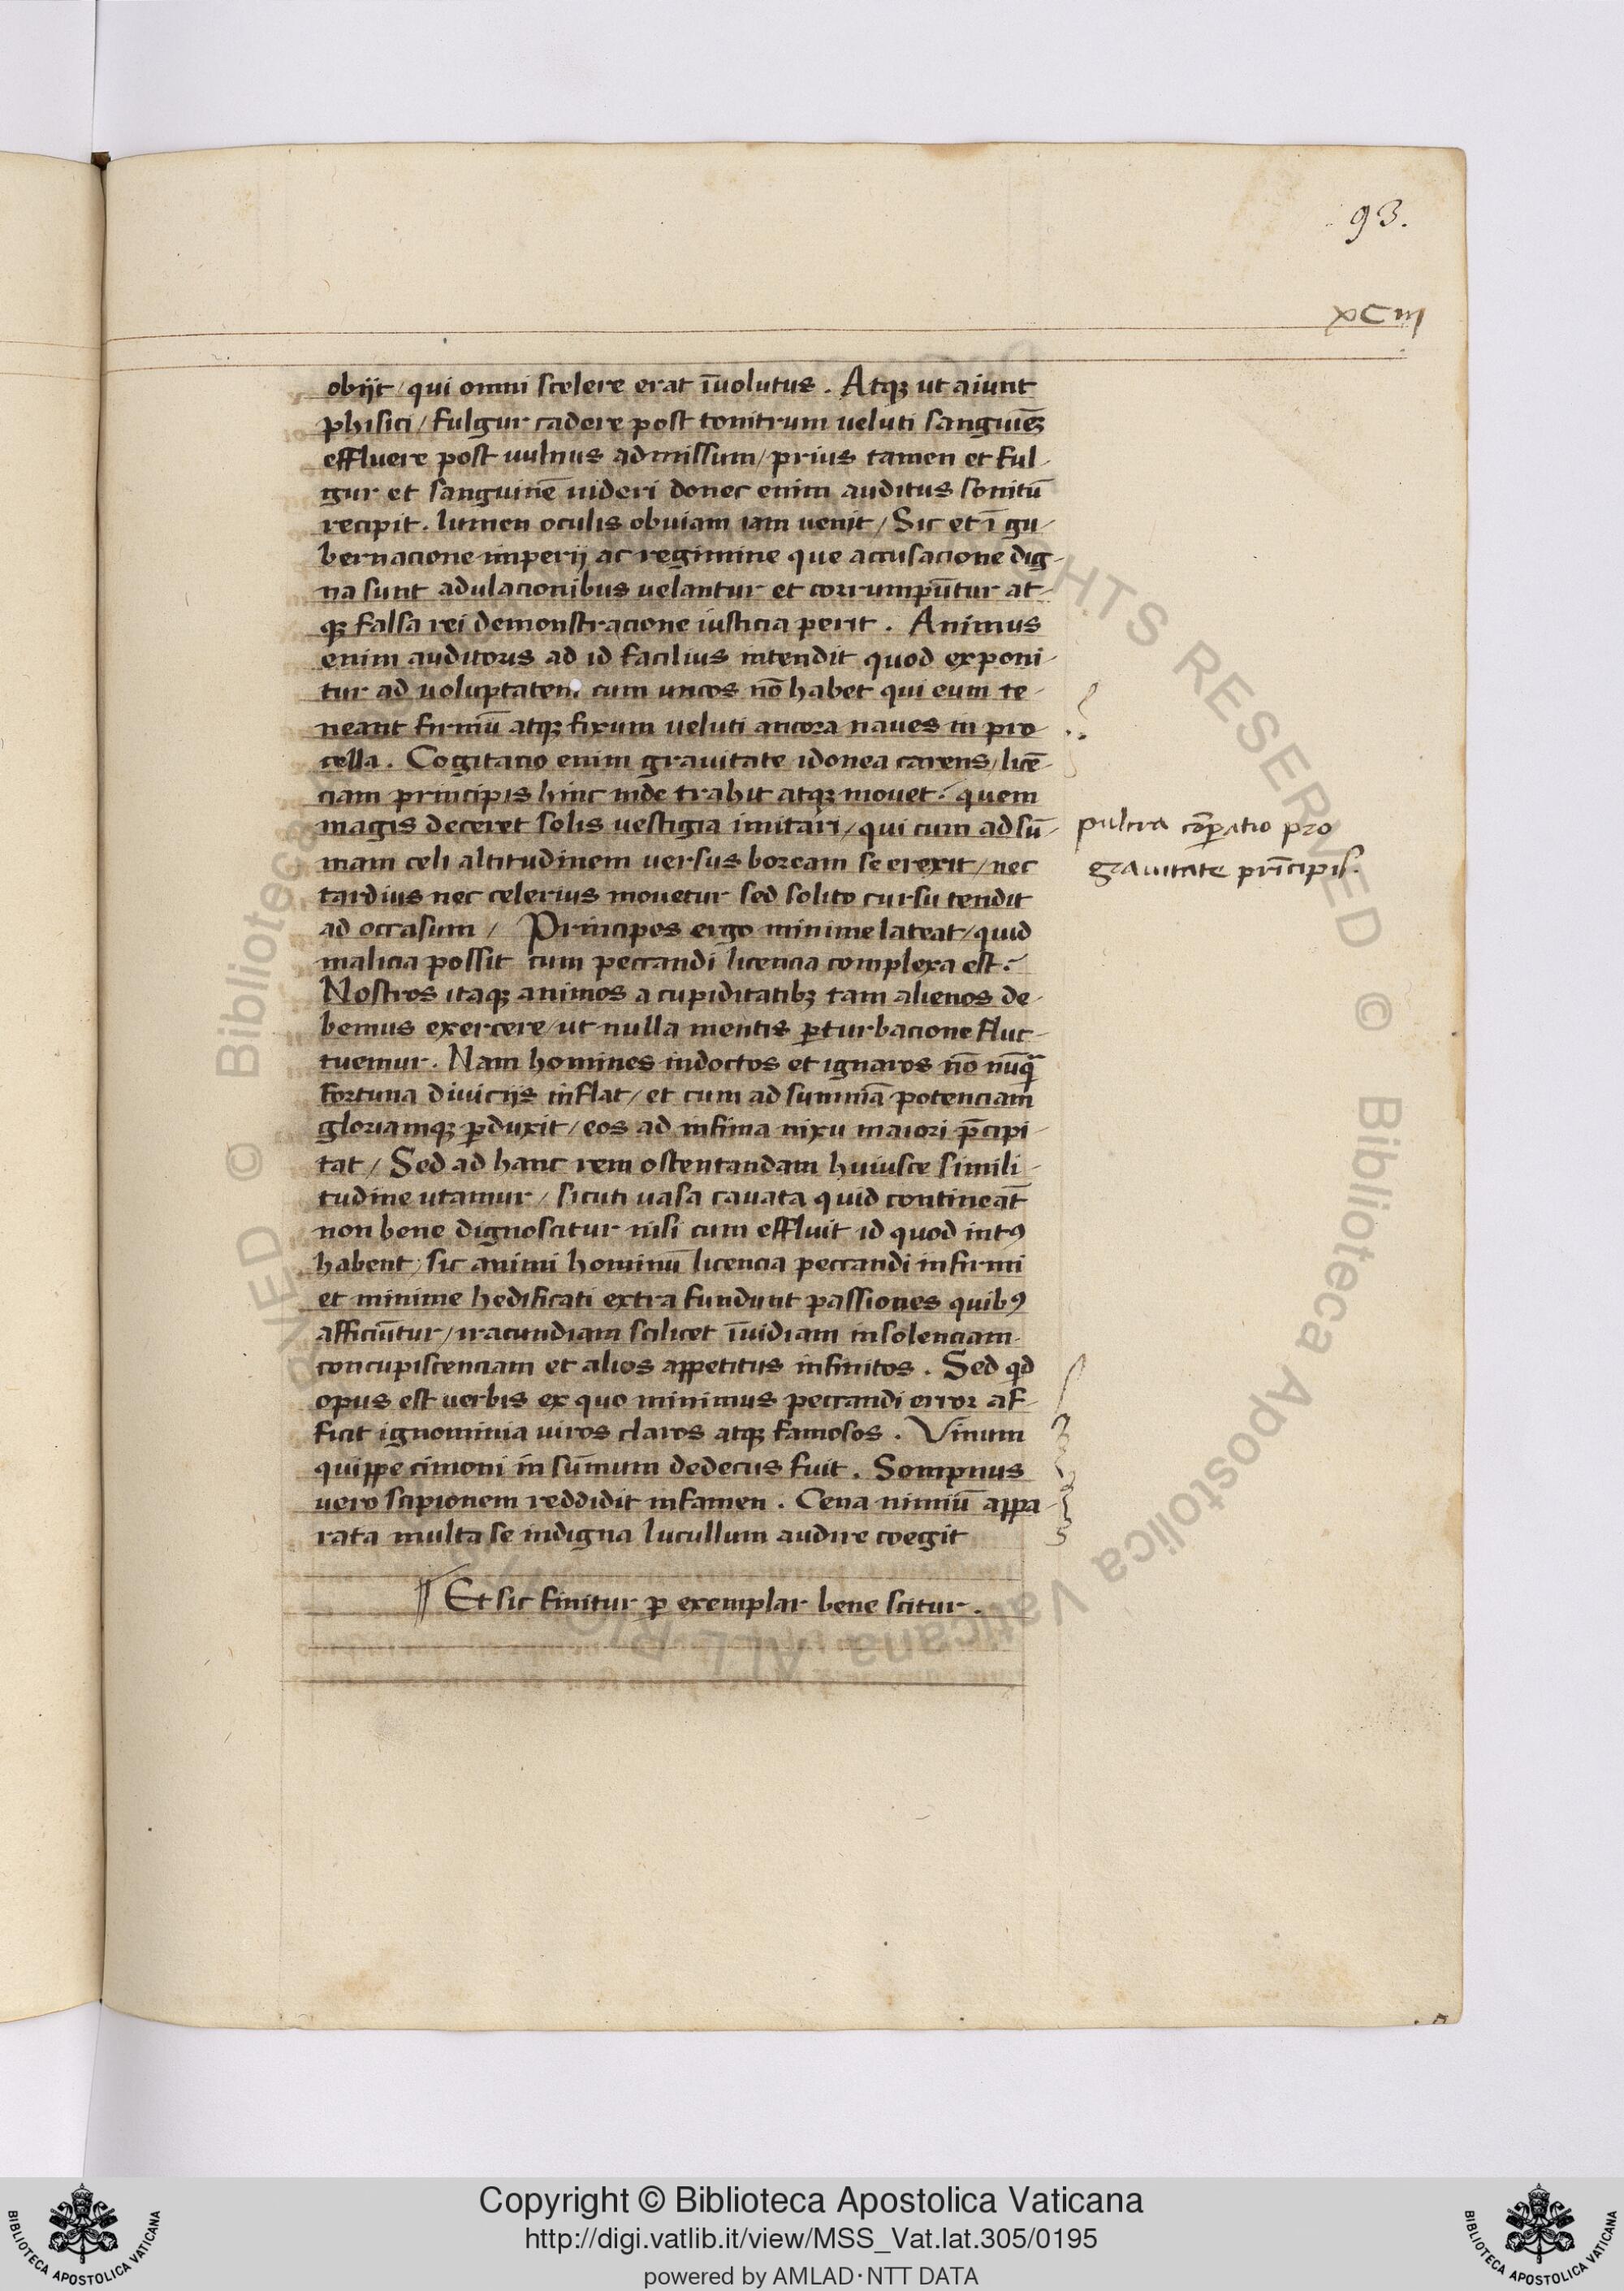 93.
xCiii
obijt / qui omni scelere erat īuolutus . Atqꝫ ut aiunt
phisici / fulgur cadere post tonitrum ueluti sanguiēꝫ
effluere post uulnus admissum / prius tamen et ful-
gur et sanguinē uideri donec enim auditus sonitū
recipit . lumen oculis obuiam iam uenit / Sic et ī gu-
bernacione imperij ac regimine que accusacione dig-
na sunt adulacionibus uelantur et corrumpūtur at-
qꝫ falsa rei demonstracione iusticia perit . Animus
enim auditorus ad id facilius intendit quod exponi-
tur ad uoluptatem cum uncos nō habet qui eum te-
neant firmū atqꝫ fixum ueluti ancora naues in pro-
cella . Cogitatio enim grauitate idonea carens / licē-
ciam principis hinc inde trahit atqꝫ mouet . quem
magis deceret solis uestigia imitari / qui cum ad sū-
mam celi altitudinem uersus boream se erexit / nec
tardius nec celerius mouetur sed solito cursu tendit
ad occasum / Principes ergo minime lateat / quid
malicia possit cum peccandi licencia complexa est .
Nostros itaqꝫ animos a cupiditatibꝫ tam alienos de-
bemus exercere / ut nulla mentis ꝑturbacione fluc-
tuemur . Nam homines indoctos et ignaros nō nūqͣ
fortuna diuicijs inflat / et cum ad summā potenciam
gloriamqꝫ ꝑduxit / eos ad infima nixu maiori p̄cipi-
tat / Sed ad hanc rem ostentandam huiusce simili-
tudine utamur / sicuti uasa cauata quid contineat̄
non bene dignoscitur nisi cum effluit id quod intꝰ
habent / sic animi hominū licencia peccandi infirmi
et minime hedificati extra fundunt passiones quibꝰ
afficiūtur / iracundiam scilicet īuidiam insolenciam
concupiscenciam et alios appetitus infinitos . Sed qd
opus est uerbis ex quo minimus peccandi error af-
ficit ignominia uiros claros atqꝫ famosos . Vinum
quippe cimoni in sūmum dedecus fuit . Sompnus
uero scipionem reddidit infamen . Cena nimiū appa-
rata multa se indigna lucullum audire coegit
pulcra cōꝑatio pro
grauitate prīcipis.
¶ Et sic finitur ꝑ exemplar bene scitur .
© Biblioteca Apostolica Vaticana ALL RIGHTS RESERVED © Biblioteca Apostolica Vaticana ALL RIGHTS RESERVED
Copyright © Biblioteca Apostolica Vaticana
http://digi.vatlib.it/view/MSS_Vat.lat.305/0195
powered by AMLAD·NTT DATA
BIBLIOTECA APOSTOLICA VATICANA
BIBLIOTECA APOSTOLICA VATICANA